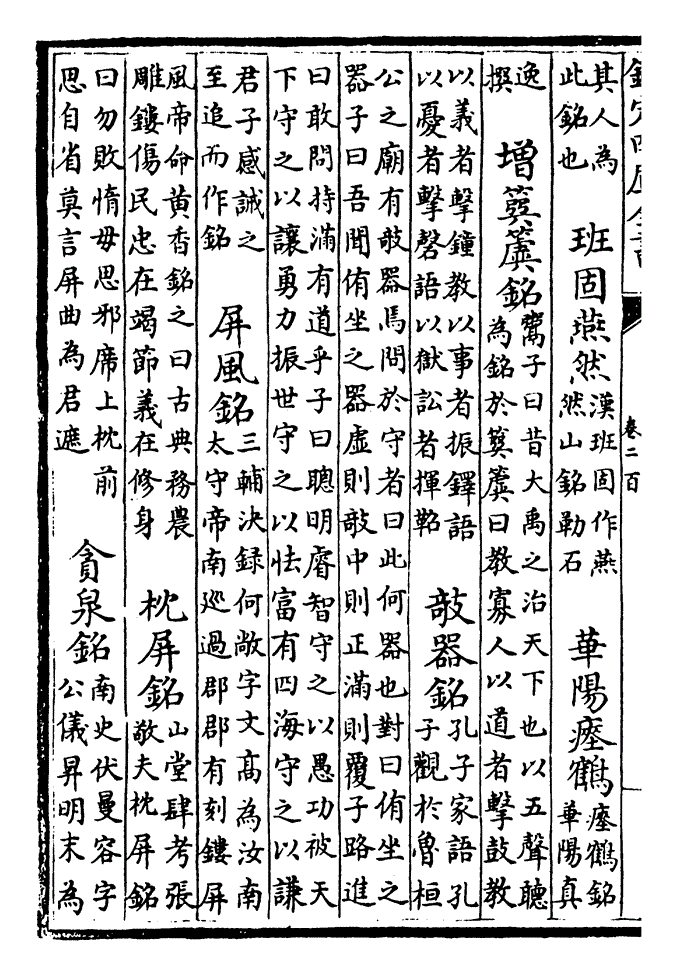 欽定四庫全書
卷二百
其人為
此銘也
班固燕然
漢班固作燕
然山銘勒石
華陽瘞鶴
瘞鶴銘
華陽真
逸
撰
增簨簴銘
鬻子曰昔大禹之治天下也以五聲聽
為銘於簨簴曰教寡人以道者擊鼓教
以義者擊鐘教以事者振鐸語
以憂者擊磬語以獄訟者揮鞀
敧器銘
孔子家語孔
子觀於魯桓
公之廟有敧器焉問於守者曰此何器也對曰侑坐之
器子曰吾聞侑坐之器虛則敧中則正滿則覆子路進
曰敢問持滿有道乎子曰聰明睿智守之以愚功被天
下守之以讓勇力振世守之以怯富有四海守之以謙
君子感誠之
至追而作銘
屏風銘
三輔決録何敞字文高為汝南
太守帝南巡過郡郡有刻鏤屏
風帝命黄香銘之曰古典務農
雕鏤傷民忠在竭節義在修身
枕屏銘
山堂肆考張
敬夫枕屏銘
曰勿敗惰毋思邪席上枕前
思自省莫言屏曲為君遮
貪泉銘
南史伏曼容字
公儀昇明末為